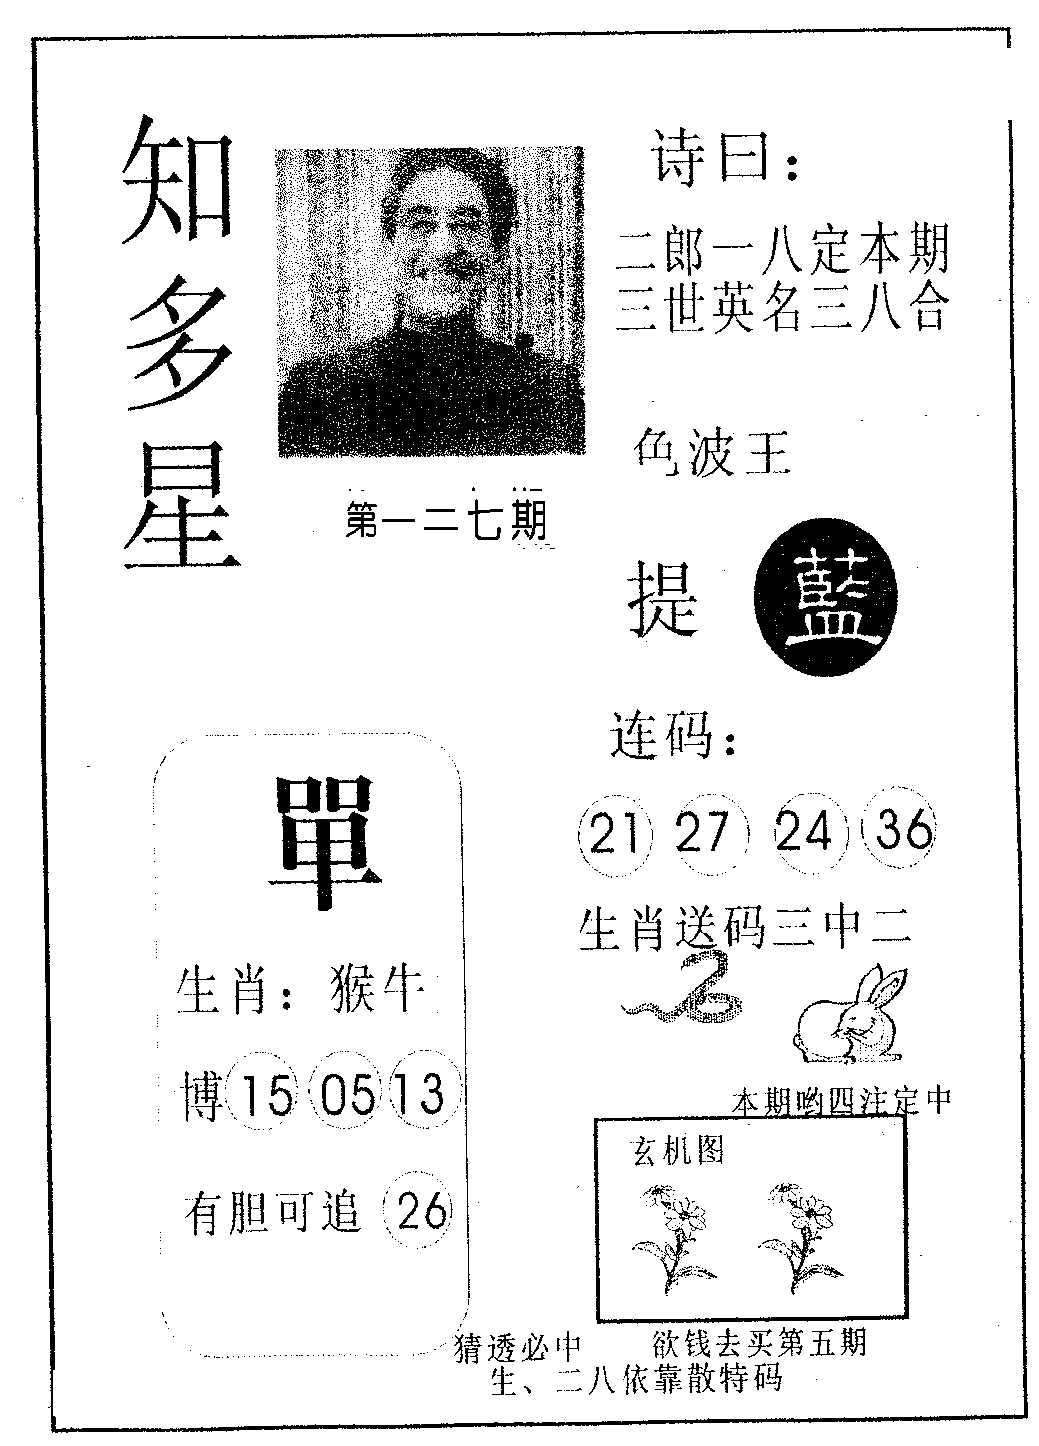 知多星
诗曰：
二郎一八定本期
三世英名三八合
第一二七期
色波王
提 藍
连码：
21 27 24 36
生肖送码三中二
單
生肖：猴牛
博 15 05 13
有胆可追 26
本期哟四注定中
玄机图
猜透必中 欲钱去买第五期
生、二八依靠散特码